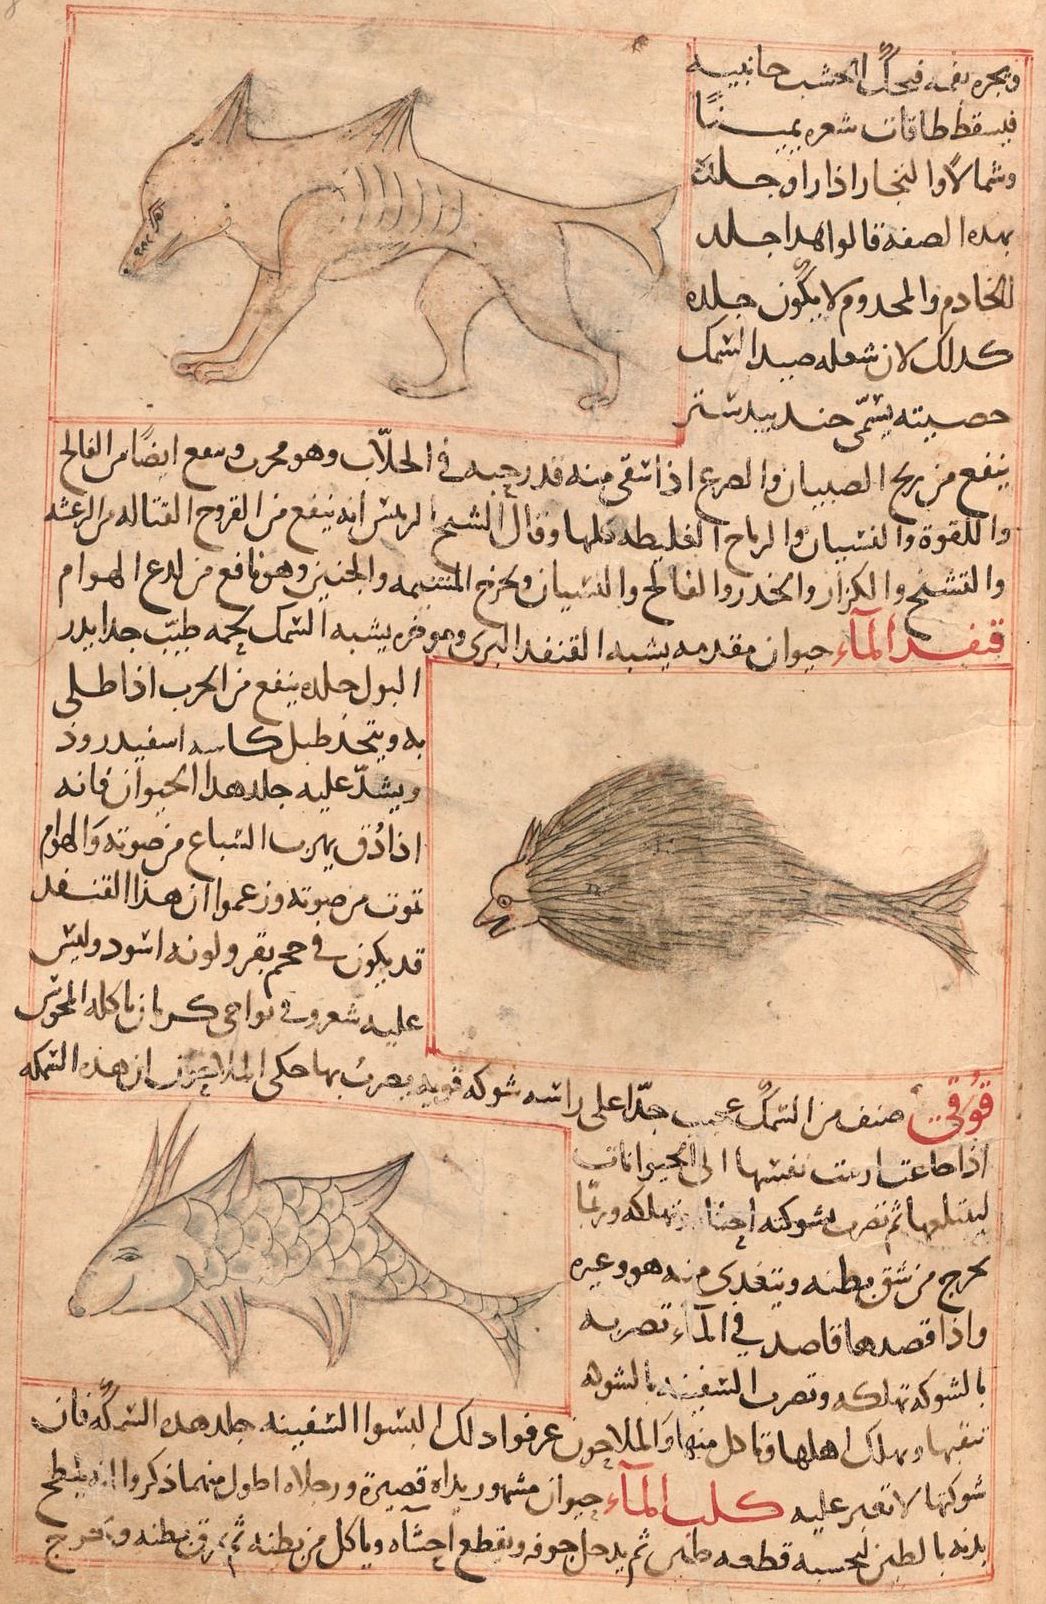 ويجره بفمه فيحك الخشب جانبيه
فيسقط طاقات شعره يمينا
وشمالا والتجار اذا راوا جلدا
بهده الصفه قالوا هدا جلد
الخادم والمخدوم لا يكون جلده
كدلك لان شعله صيد السمك
خصيته يسمى جندبيدستر
ينفع من ريح الصبيان والصرع اذا سقى منه قدر حبه في الجلاب وهو مجرب وينفع ايضا من الفالج
واللقوة والنسيان والرياح الغليظه كلها وقال الشيخ الرييس انه ينفع من القروح القتاله من الرعشه
والتشنج والكزاز والخدر والفالج والنسيان ويخرج المشيمه والجنين وهو نافع من لدع الهوام
قنفد المآء حيوان مقدمه يشبه القنفد البرى وموخره يشبه السمك لحمه طيب جدا يدر
البول جلده ينفع من الجرب اذا طلى
به ويتخذ طبل كاسه اسفيدروذ
ويشد عليه جلد هدا الحيوان فانه
اذا دق يهرب السباع من صوته والهوام
تموت من صوته وزعموا ان هذا القنفد
قد يكون في حجم بقر ولونه اسود وليس
عليه شعر وفي نواحي كرمان ياكله المجوس
قوقى صنف من السمك عجيب جدا على راسه شوكه قويه يضرب بها حكى الملاحون ان هذه السمكه
اذا جاعت رمت نفسها الى الحيوانات
ليبتلعها ثم تضرب بشوكته احشاه وتهلكه وربما
يخرج من شق بطنه ويتغدى منه هو وغيره
واذا قصدها قاصد في المآء تضربه
بالشوكه تهلكه وتضرب السفينه بالشوكه
تنقبها ويهلك اهلها وتاكل منها والملاحون عرفوا دلك البسوا السفينه جلد هده السمكه فان
شوكتها لا تعبر عليه كلب المآء حيوان مشهور يداه قصيرة ورجلاه اطول منهما ذكروا انه يلطح
بدنه بالطين ليحسبه قطعه طين ثم يدخل جوفه ويقطع احشآه وياكل من بطنه ثم يمزق بطنه ويخرج